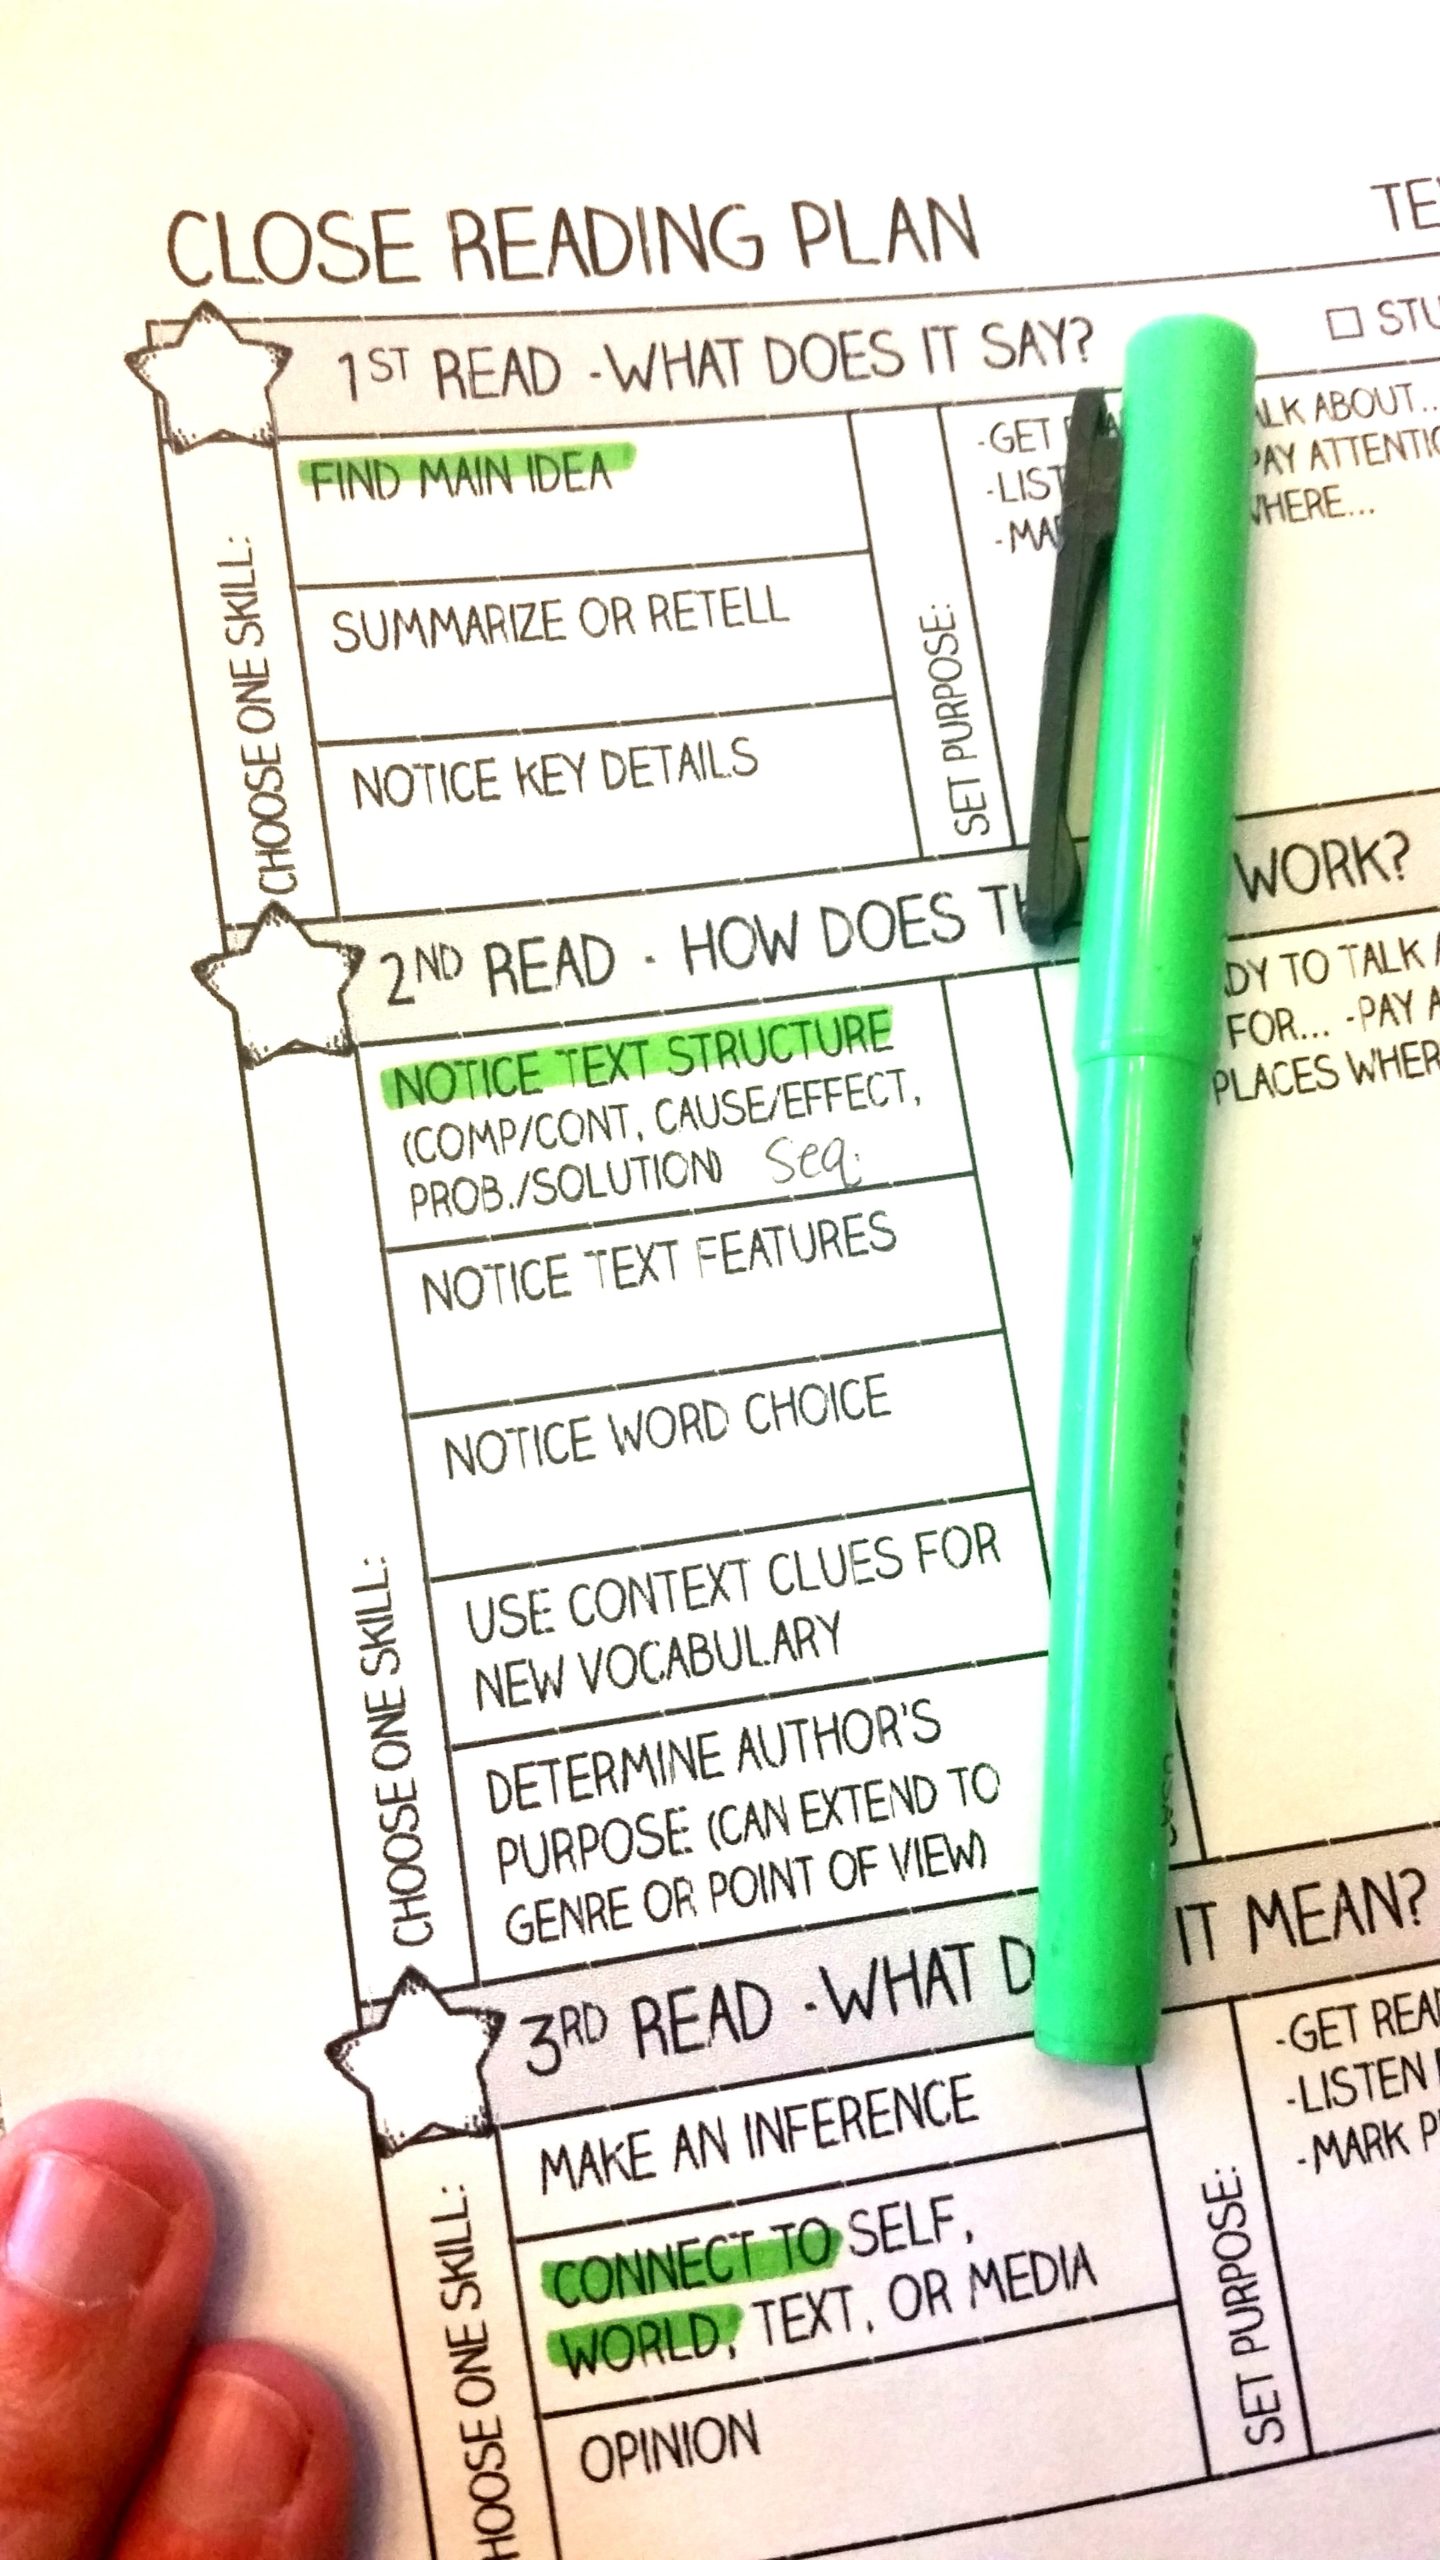 CLOSE READING PLAN
1ST READ - WHAT DOES IT SAY?
CHOOSE ONE SKILL:
FIND MAIN IDEA
SUMMARIZE OR RETELL
NOTICE KEY DETAILS
SET PURPOSE:
-GET ALK ABOUT...
-LIST PAY ATTENTIO
-MA WHERE...
2ND READ - HOW DOES TH WORK?
CHOOSE ONE SKILL:
NOTICE TEXT STRUCTURE
(COMP/CONT, CAUSE/EFFECT,
PROB./SOLUTION) Seq.
NOTICE TEXT FEATURES
NOTICE WORD CHOICE
USE CONTEXT CLUES FOR
NEW VOCABULARY
DETERMINE AUTHOR'S
PURPOSE (CAN EXTEND TO
GENRE OR POINT OF VIEW)
DY TO TALK A
FOR... -PAY A
PLACES WHER
3RD READ - WHAT D IT MEAN?
HOOSE ONE SKILL:
MAKE AN INFERENCE
CONNECT TO SELF,
WORLD, TEXT, OR MEDIA
OPINION
SET PURPOSE:
-GET REA
-LISTEN
-MARK P